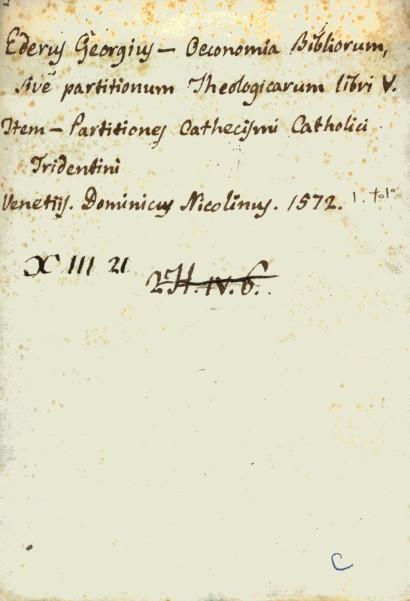 Ederus Georgius — Oeconomia Bibliorum,
sivè partitionum Theologicarum libri V.
Item — Partitiones Cathecismi Catholici
Tridentini
Venetijs. Dominicus Nicolinus. 1572. 1. tol°
X III 21
H. IV. 6.
C